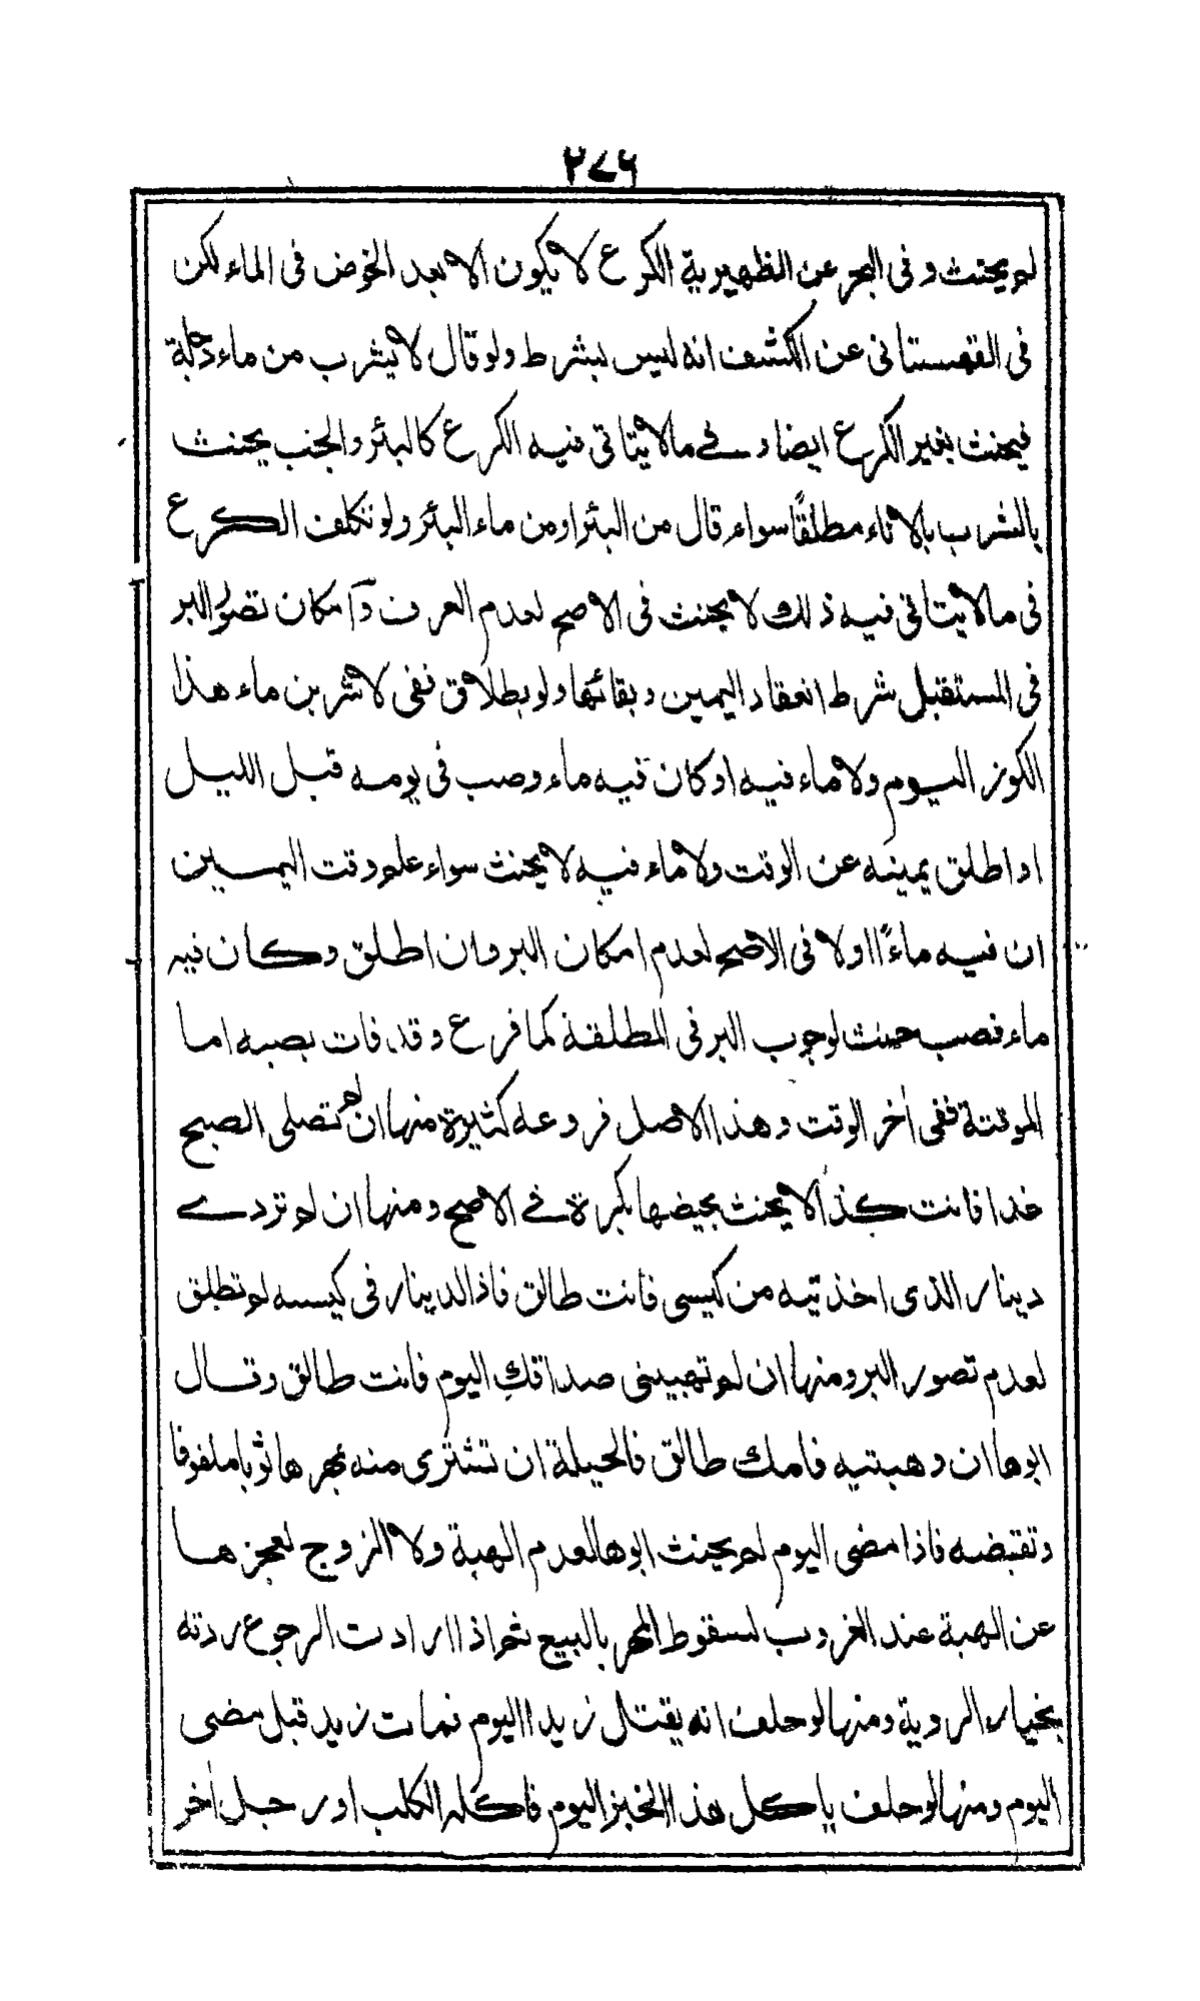 ٢٧٦
لم يحنث وفى البحر عن الظهيرية الكرع لا يكون الا بعد الخوض فى الماء لكن
فى القهستانى عن الكشف انه ليس بشرط ولو قال لا يشرب من ماء دجلة
فيحنث بغير الكرع ايضا وفے مالا يتاتى فيه الكرع كالبئر والجنب يحنث
بالشرب بالاناء مطلقًا سواء قال من البئر او من ماء البئر ولو تكلف الكرع
فى مالا يتاتى فيه ذلك لا يحنث فى الاصح لعدم العرف وامكان تصوُّر البر
فى المستقبل شرط انعقاد اليمين وبقائها ولو بطلاق نفى لاشربن ماء هذا
الكوز اليوم ولا ماء فيه او كان فيه ماء وصب فى يومه قبل الليل
او اطلق يمينه عن الوقت ولا ماء فيه لا يحنث سواء علم وقت اليمين
ان فيه ماءً او لا فى الاصح لعدم امكان البر وان اطلق وكان فيه
ماء فصب حنث لوجوب البر فى المطلقة كما فرغ وقد فات بصبه اما
الموقتة ففى اٰخر الوقت وهذا الاصل فروعه كثيرة منها ان لم تصلى الصبح
غدا فانت كذا لا يحنث بحيضها بكرة فے الاصح ومنها ان لم تردے
دينار الذى اخذتيه من كيسى فانت طالق فاذا الدينار فى كيسه لم تطلق
لعدم تصور البر ومنها ان لم تهبينى صداقكِ اليوم فانت طالق وقال
ابوها ان وهبتيه فامك طالق فالحيلة ان تشترى منه بمهرها ثوبا ملفوفا
وتقبضه فاذا مضى اليوم لم يحنث ابوها لعدم الهبة ولا الزوج لعجزها
عن الهبة عند الغروب لسقوط المهر بالبيع ثم اذا ارادت الرجوع ردته
بخيار الروية ومنها لو حلف انه يقتل زيدا اليوم فمات زيد قبل مضى
اليوم ومنها لو حلف ياكل هذا الخبز اليوم فاكله الكلب او رجل اٰخر